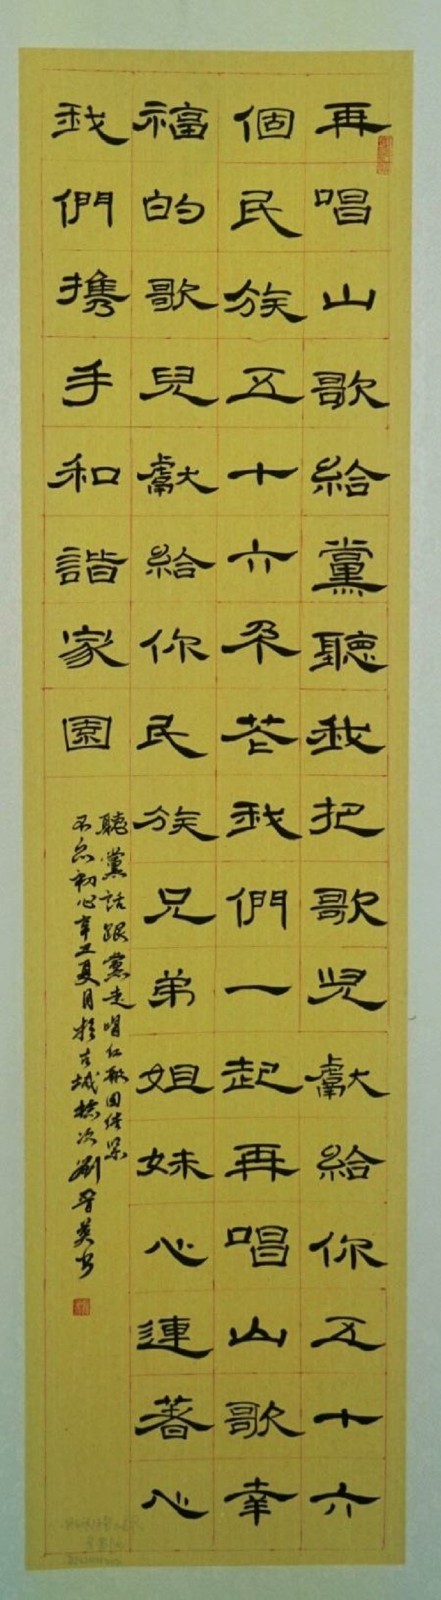 再唱山歌給黨聽我把歌兒獻給你五十六
個民族五十六朵花我們一起再唱山歌幸
福的歌兒獻給你民族兄弟姐妹心連著心
我們攜手和諧家園
聽黨話跟黨走唱紅歌團結眾
不忘初心辛丑夏月於古城